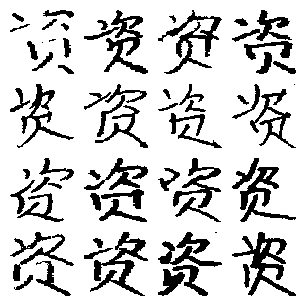 资资资资
资资资资
资资资资
资资资资